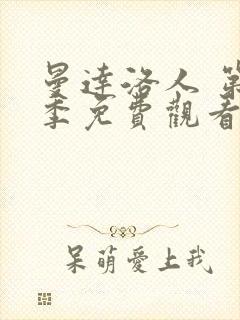 曼達洛人 第
季免費觀看
呆萌愛上我